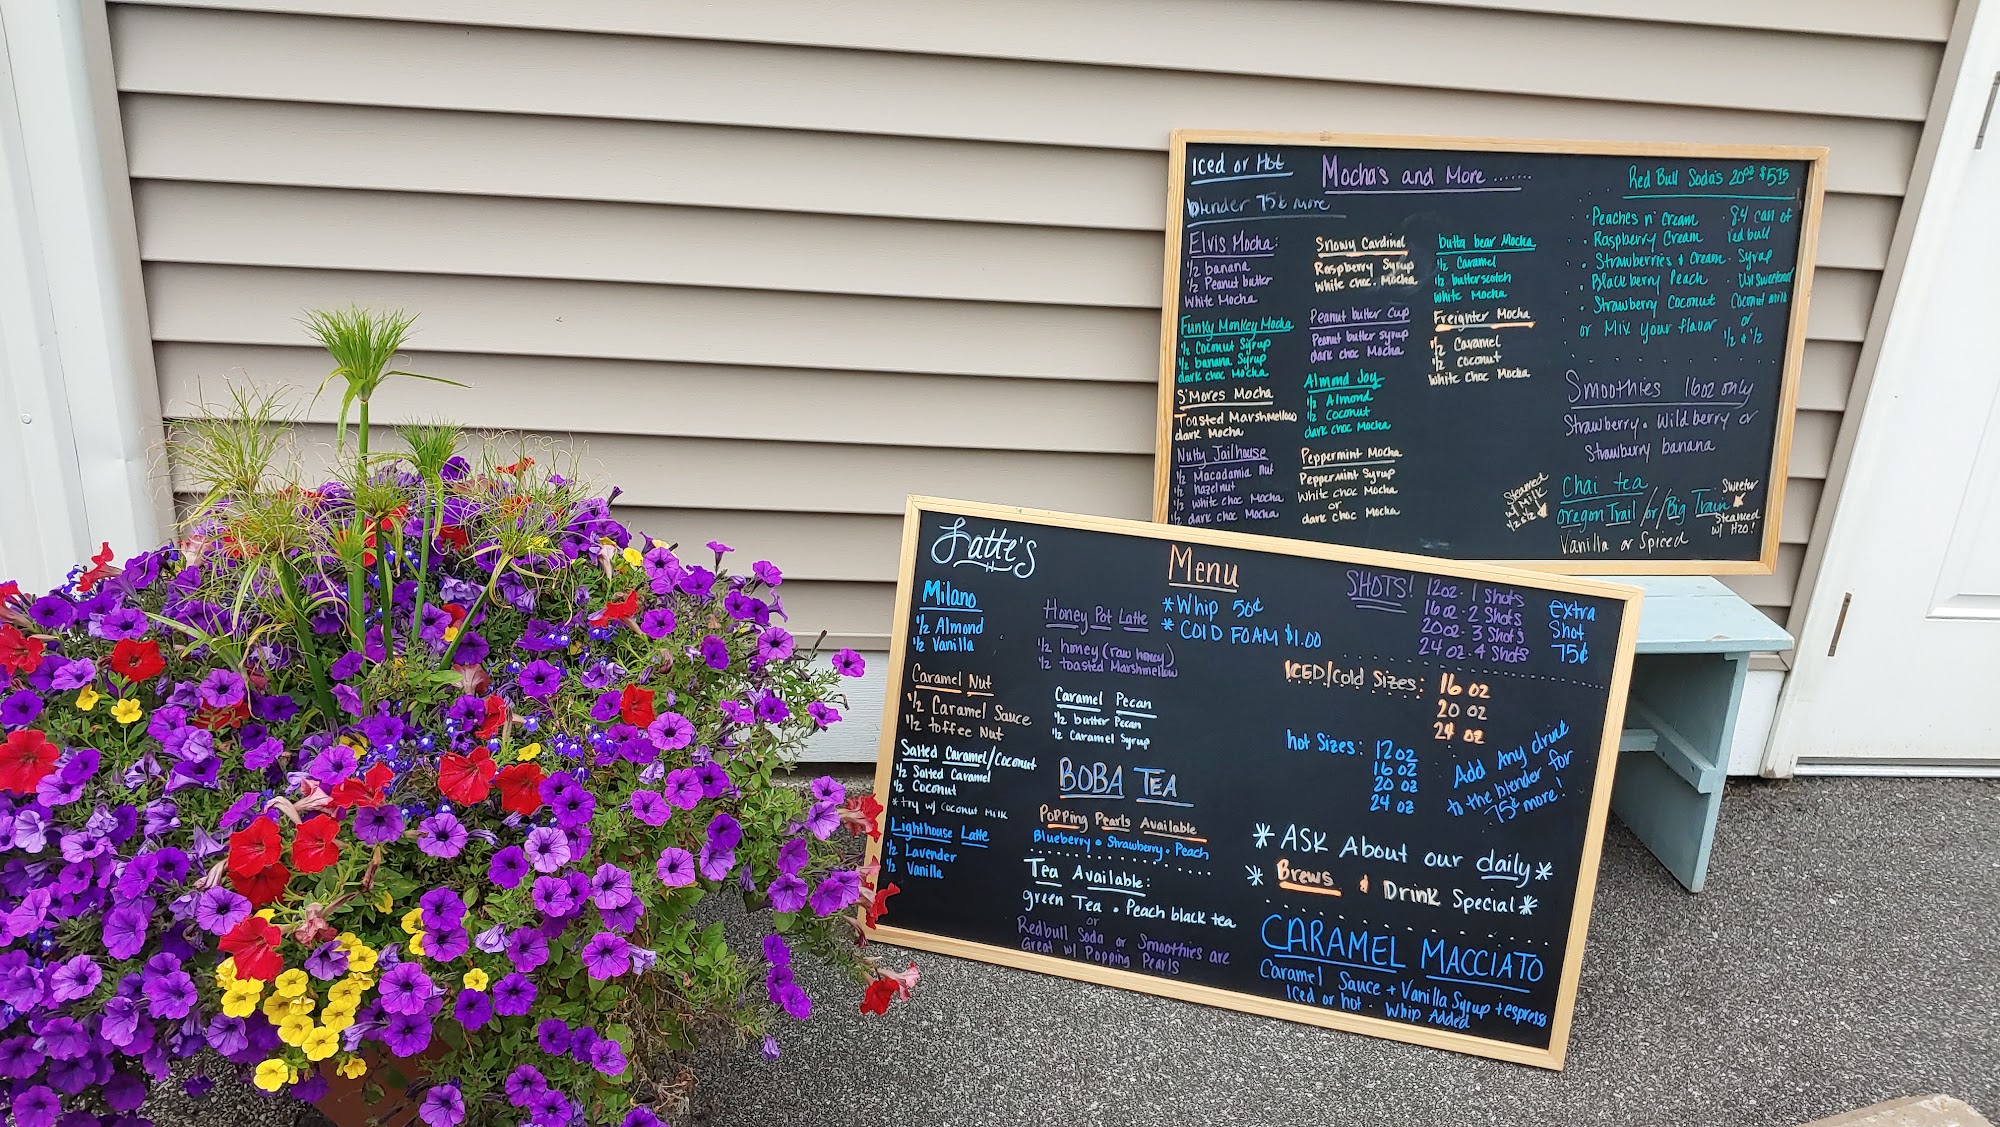 Iced or Hot
blender 75¢ more
Mocha's and More .......
Elvis Mocha:
1/2 banana
1/2 Peanut butter
White Mocha
Funky Monkey Mocha
1/2 Coconut Syrup
1/2 banana Syrup
dark choc Mocha
S'Mores Mocha
Toasted Marshmellow
dark Mocha
Nutty Jailhouse
1/2 Macadamia nut
1/2 hazelnut
1/2 White choc Mocha
1/2 dark choc Mocha
Snowy Cardinal
Raspberry Syrup
White choc. Mocha
Peanut butter Cup
Peanut butter syrup
dark choc Mocha
Almond Joy
1/2 Almond
1/2 Coconut
dark choc Mocha
Peppermint Mocha
Peppermint Syrup
White choc Mocha
or
dark choc Mocha
butta bear Mocha
1/2 Caramel
1/2 butterscotch
White Mocha
Freighter Mocha
1/2 Caramel
1/2 coconut
White Choc Mocha
Red Bull Soda's 20oz $5.75
· Peaches n' Cream
· Raspberry Cream
· Strawberries & Cream
· Blackberry Peach
· Strawberry Coconut
or Mix your flavor
· 8.4 can of
red bull
· Syrup
· Unsweetened
Coconut milk
or
1/2 & 1/2
Smoothies 16oz only
Strawberry · Wildberry or
Strawberry banana
Chai tea
Oregon Trail / or / Big Train
Vanilla or Spiced
Steamed
w/ Milk
1/2 & 1/2
Sweeter
Steamed
w/ H2O!
Latte's
Milano
1/2 Almond
1/2 Vanilla
Caramel Nut
1/2 Caramel Sauce
1/2 toffee Nut
Salted Caramel/Coconut
1/2 Salted Caramel
1/2 Coconut
*try w/ Coconut Milk
Lighthouse Latte
1/2 Lavender
1/2 Vanilla
Menu
*Whip 50¢
* COLD FOAM $1.00
Honey Pot Latte
1/2 honey (raw honey)
1/2 toasted Marshmellow
Caramel Pecan
1/2 butter Pecan
1/2 Caramel Syrup
BOBA TEA
Popping Pearls Available
Blueberry · Strawberry · Peach
Tea Available:
green Tea · Peach black tea
or
Redbull Soda or Smoothies are
Great w/ Popping Pearls
SHOTS! 12oz - 1 Shots
16oz - 2 Shots
20oz - 3 Shots
24oz - 4 Shots
extra
Shot
75¢
ICED/Cold Sizes: 16 oz
20 oz
24 oz
hot Sizes: 12oz
16 oz
20 oz
24 oz
Add Any drink
to the blender for
75¢ more!
* ASK About our daily *
* Brews & Drink Special *
CARAMEL MACCIATO
Caramel Sauce + Vanilla Syrup + espresso
Iced or hot · Whip Added